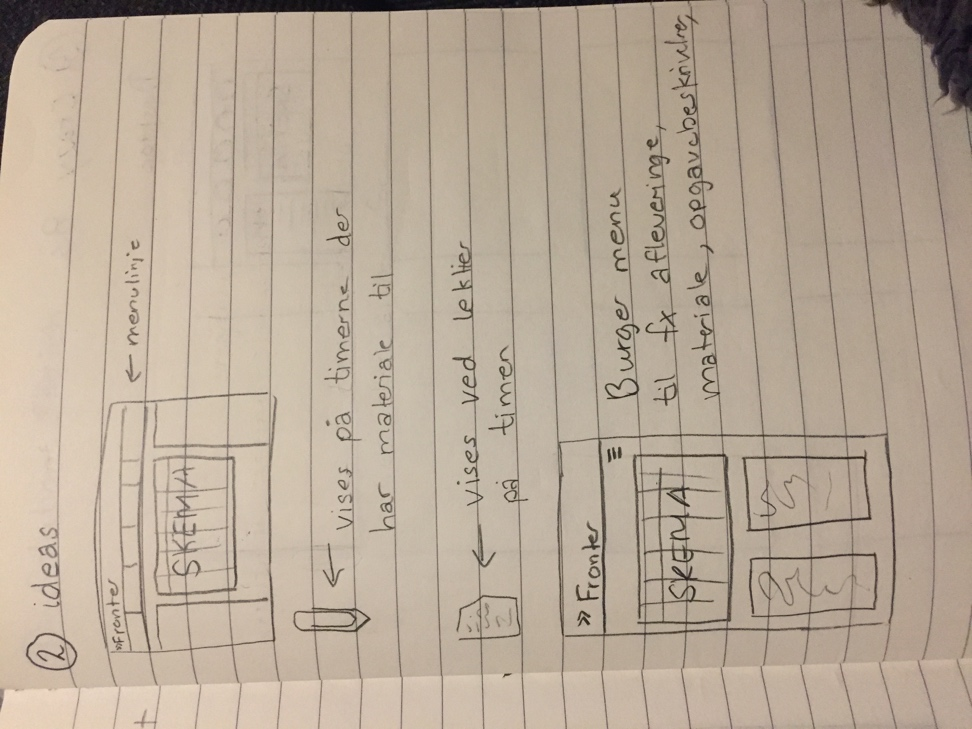 2 ideas
»Fronter
← menulinje
SKEMA
← vises på timerne der
har materiale til
← vises ved lektier
på timen
» Fronter
≡
SKEMA
Burger menu
til fx afleveringe,
materiale, opgavebeskrivelser,